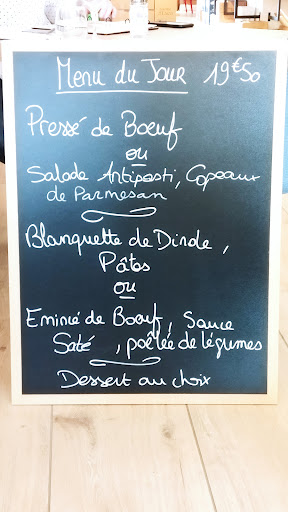 Menu du Jour 19€50
Pressé de Boeuf
ou
Salade Antipasti, Copeaux
de Parmesan
Blanquette de Dinde,
Pâtes
ou
Emincé de Boeuf, Sauce
Saté, poêlée de légumes
Dessert au choix